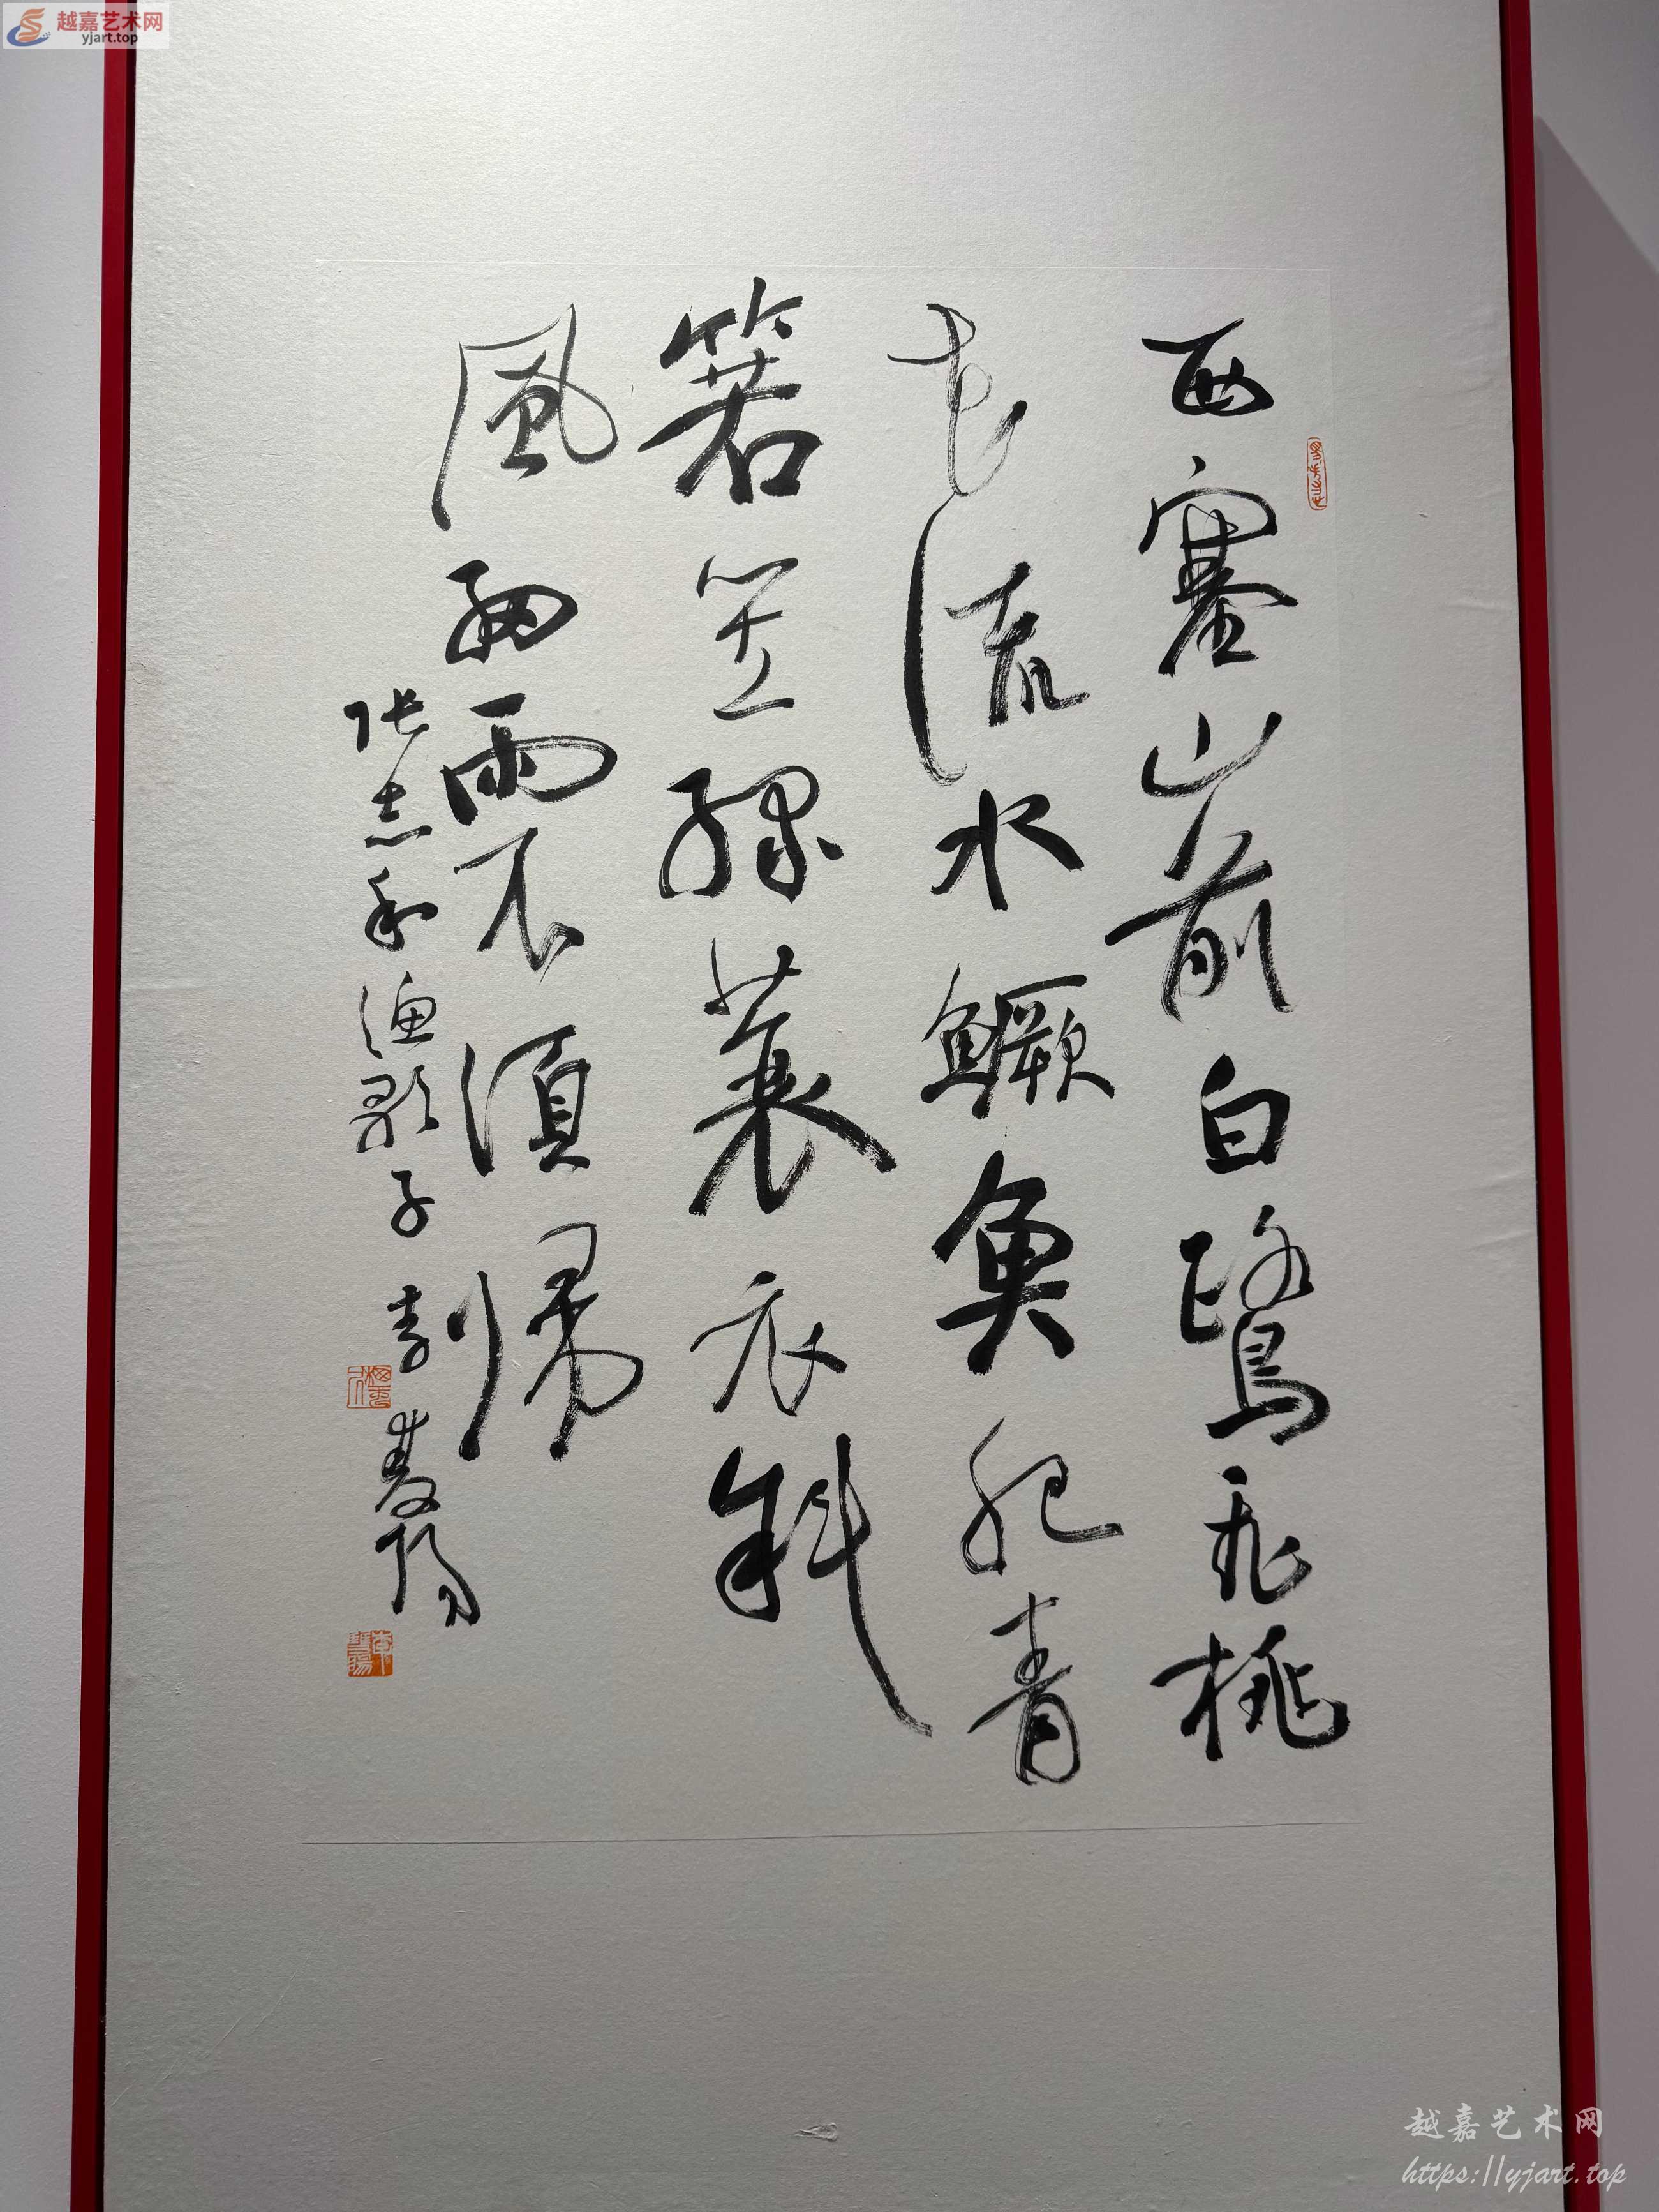 越嘉艺术网
yjart.top
西塞山前白鷺飛桃
花流水鱖魚肥青
箬笠綠蓑衣斜
風細雨不須歸
張志和漁歌子 李雙陽
越嘉艺术网
https://yjart.top